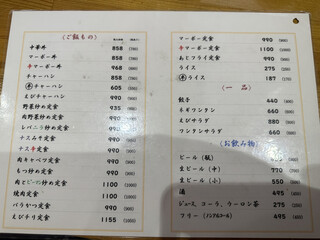 (ご飯もの)
中華丼 858 (780)
マーボー丼 858 (780)
辛マーボー丼 968 (880)
チャーハン 858 (780)
半チャーハン 605 (550)
えびチャーハン 990 (900)
野菜炒め定食 935 (850)
肉野菜炒め定食 990 (900)
レバニラ炒め定食 990 (900)
ナスみそ定食 990 (900)
ナス辛定食 990 (900)
肉キャベツ定食 990 (900)
もつ炒め定食 990 (900)
肉とピーマン炒め定食 1100 (1000)
焼肉定食 1100 (1000)
バリやつ定食 990 (900)
えびチリ定食 1155 (1050)
マーボー定食 990 (900)
辛マーボー定食 1100 (1000)
あじフライ定食 990 (900)
ライス 275 (250)
半ライス 187 (170)
(一品)
餃子 440 (400)
ネギワンタン 660 (600)
えびサラダ 880 (800)
ワンタンサラダ 660 (600)
(お飲み物)
ビール (瓶) 660 (600)
生ビール (中) 770 (700)
生ビール (小) 550 (500)
酒 495 (450)
ジュース コーラ、ウーロン茶 275 (250)
フリー (ノンアルコール) 495 (450)